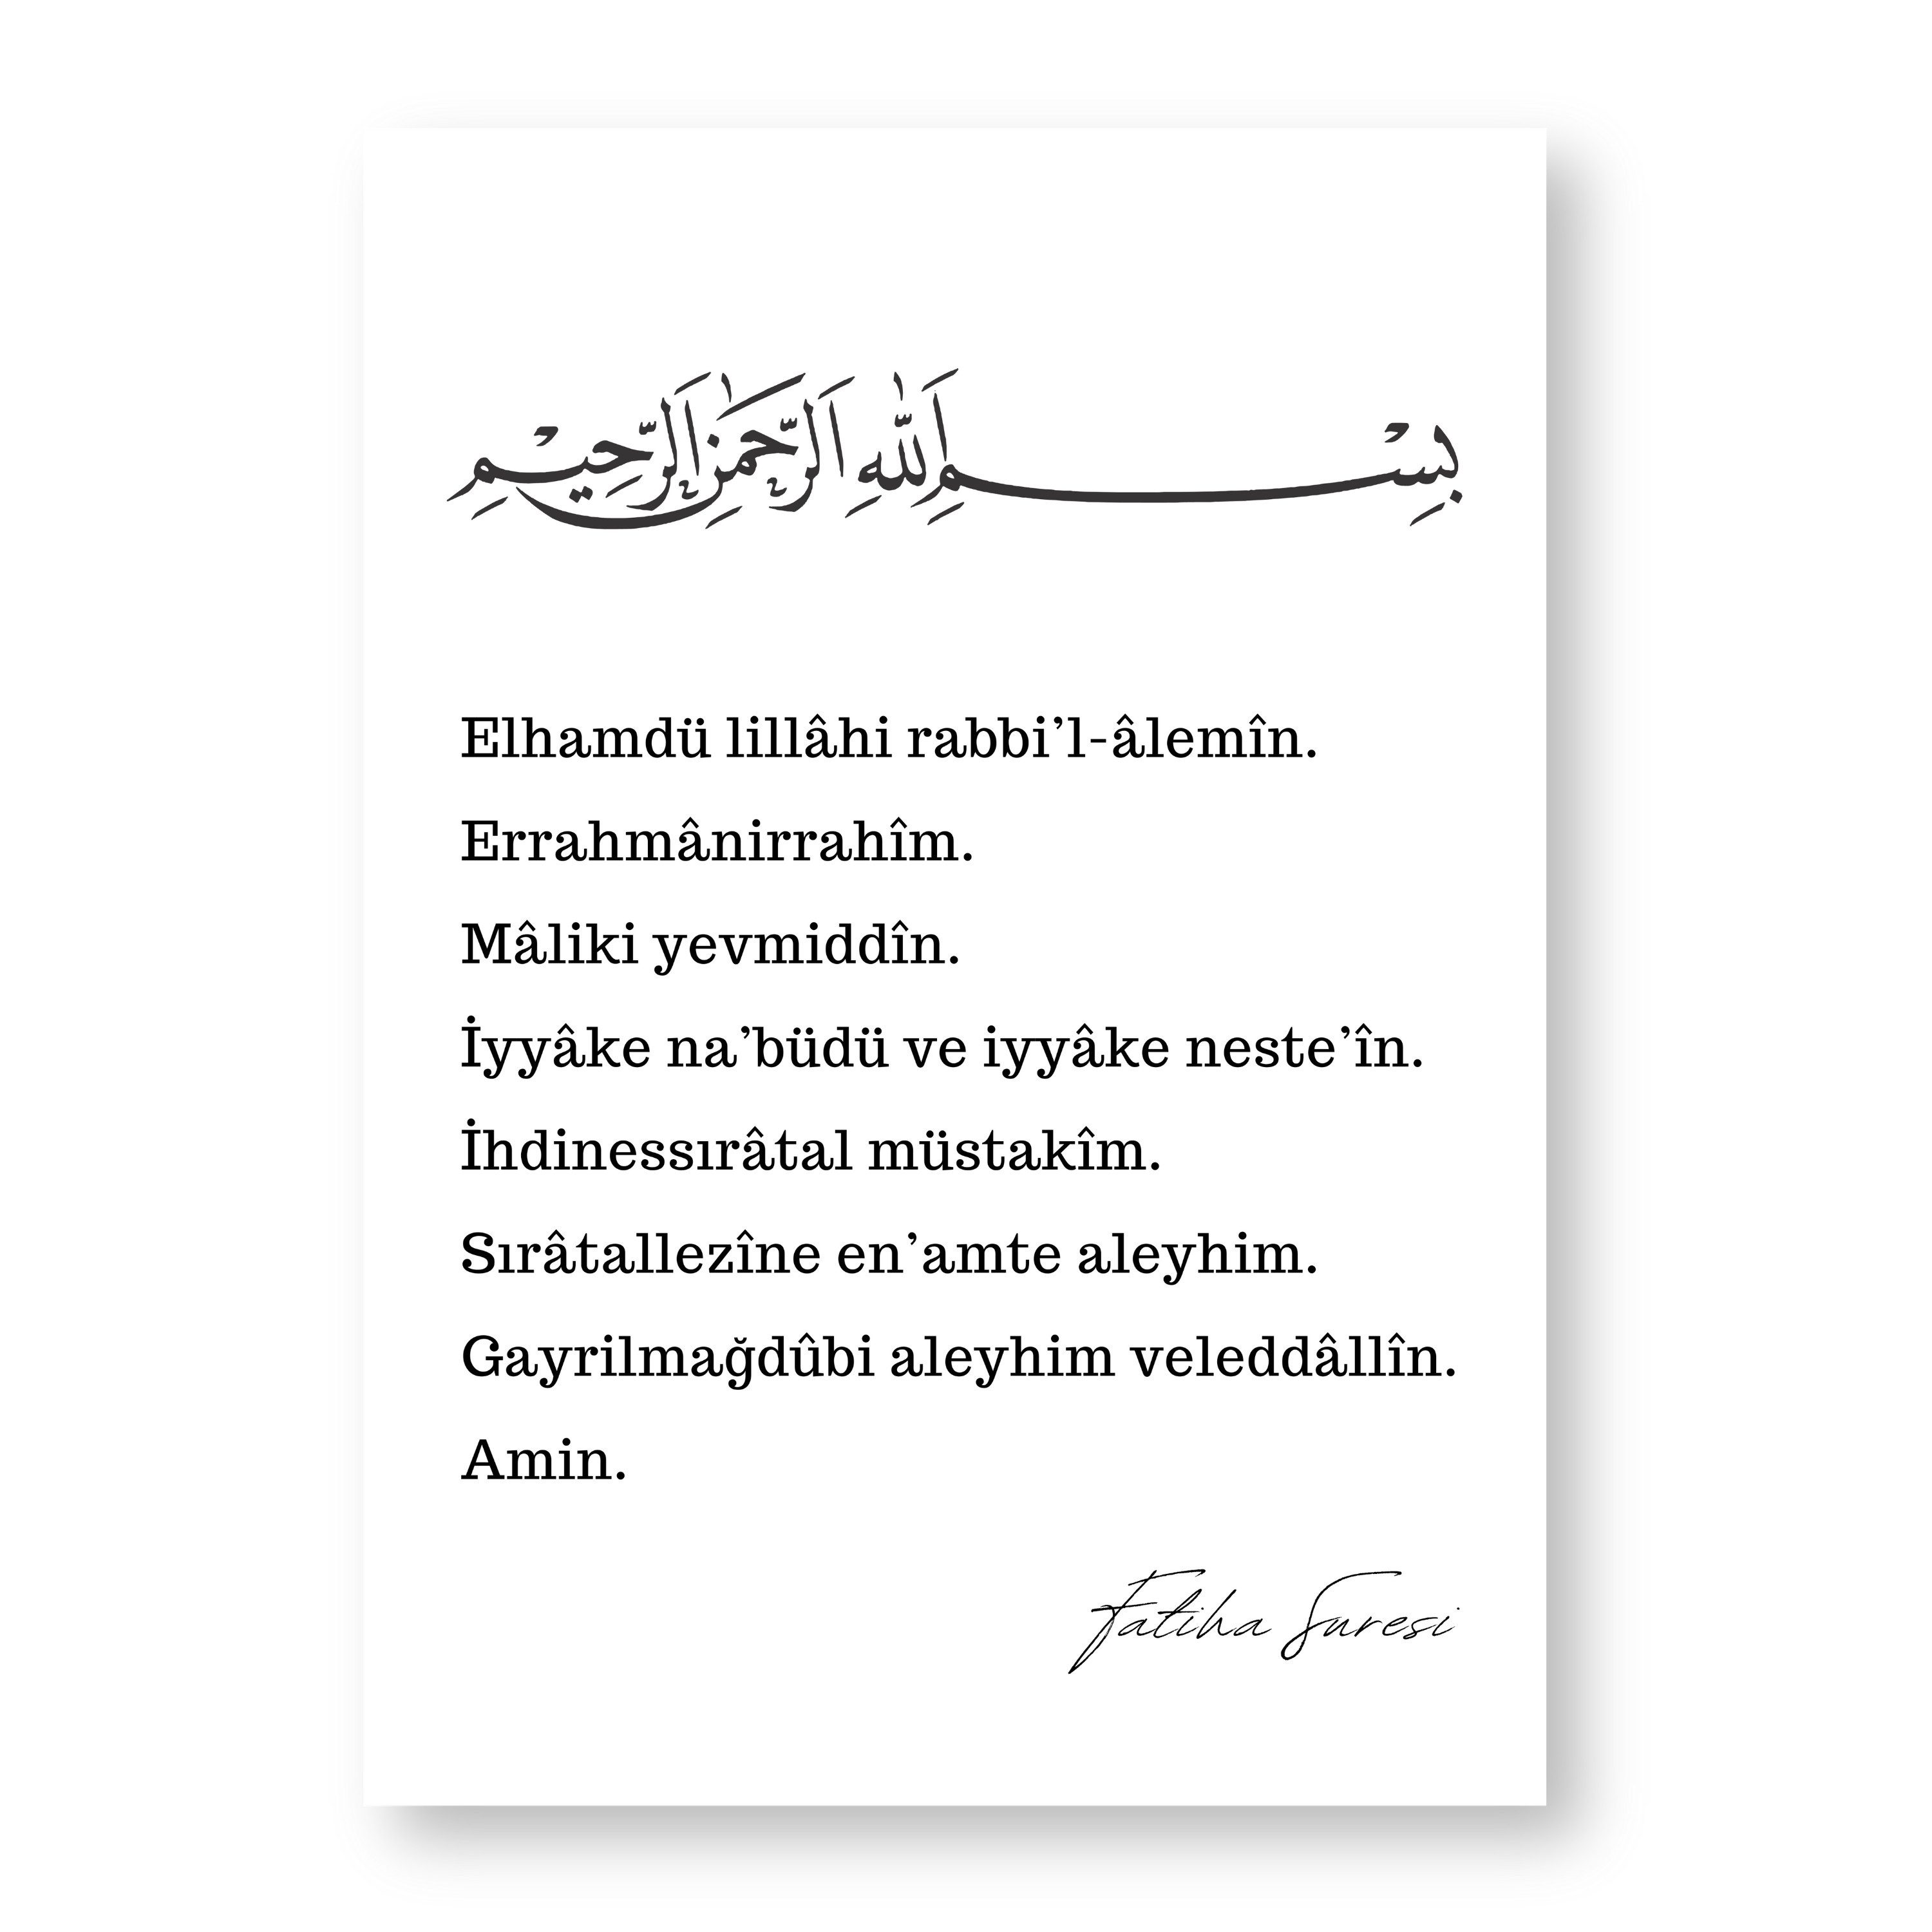 بِسْمِ اللّٰهِ الرَّحْمٰنِ الرَّحِيمِ
Elhamdü lillâhi rabbi’l-âlemîn.
Errahmânirrahîm.
Mâliki yevmiddîn.
İyyâke na’büdü ve iyyâke neste’în.
İhdinessırâtal müstakîm.
Sırâtallezîne en’amte aleyhim.
Gayrilmağdûbi aleyhim veleddâllîn.
Amin.
Fatiha Suresi